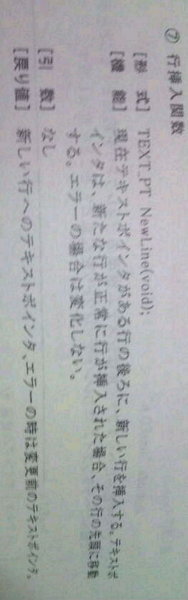 ⑦ 行挿入関数
[形 式] TEXT_PT NewLine(void);
[機 能] 現在テキストポインタがある行の後ろに、新しい行を挿入する。テキストポ
インタは、新たな行が正常に行が挿入された場合、その行の先頭に移動
する。エラーの場合は変化しない。
[引 数] なし
[戻り値] 新しい行へのテキストポインタ、エラーの時は変更前のテキストポインタ。